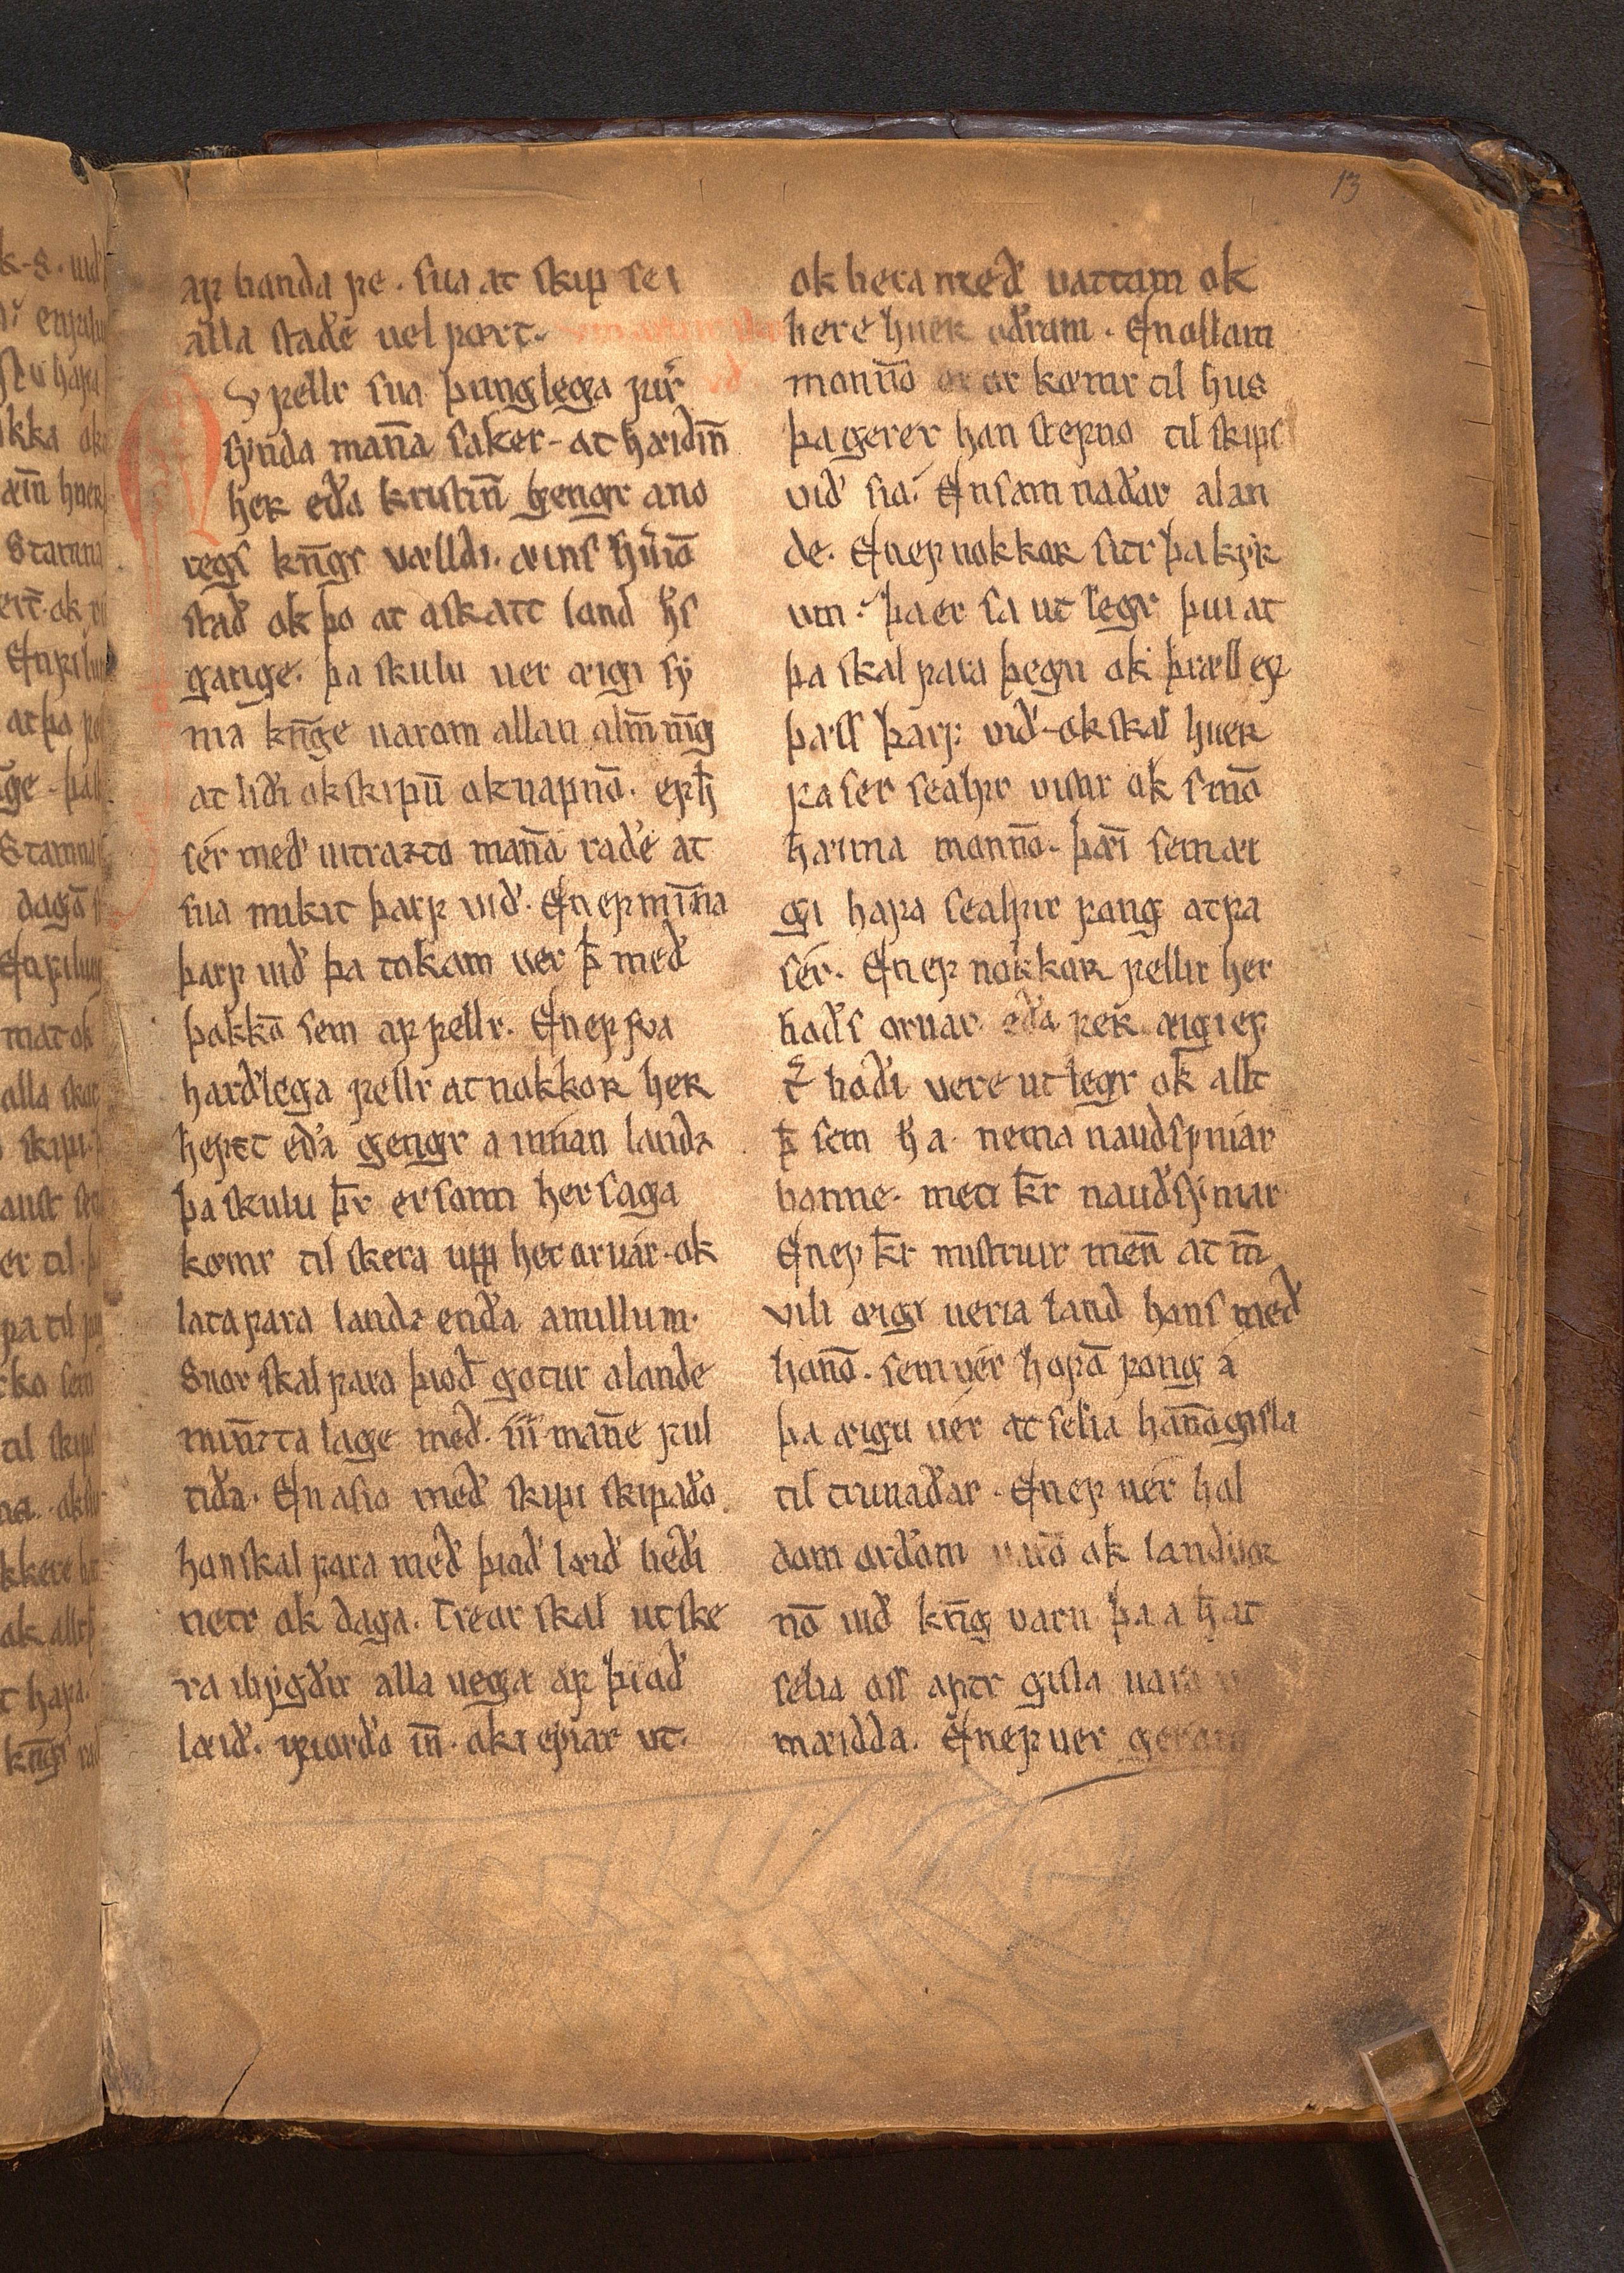 13
af handa fe. sua at skip sei
alla staðe uel fært.
Nv fellr sua þunglega fur͛
synda man̅a saker. at hæidin̅
her eða kristin̅ gengr a no
regs kn̅gs vælldi. æins hu̅io̅
stað ok þo at a skatt land h̅s
gange. þa skulu uer æigi sy
nia kn̅ge uarom allan alm̅ni̅g
at liði ok skipu̅ ok uapno̅. ef h̅
ser með uitrazto man̅a raðe at
sua mikit þarf uið. En ef mi̅na
þarf uið þa tokom ver þ̅ með
þokko̅ sem af fellr. En ef sva
harðlega fellr at nokkor her
hefst eða gengr a innan landz
þa skulu þ̅r er sonn hersaga
kœmr til skera upp herorvar. ok
lata fara landz enda a millum.
Suor skal fara þioð gotur a lande
min̅zta lage með. iii. man̅e ful
tiða. En a sio með skipi skipaðo.
hon skal fara með þioð læið bæði
netr ok daga. Treor skal ut ske
ra i bygðir alla uega af þioð
læið. i fiorðo in̅. ok i eyiar ut.
ok bera með vattom ok
bere huer oðrum. En ollom
monno̅ or ar kœmr til hus
þa gerer hon stefno til skips
við sia. En sam nadar a lan
de. En ef nokkor sitr þa kyr
um. þa er sa utlegr þui at
þa skal fara þegn ok þræll ef
þæss þarf við. ok skal huer
fa ser sealfr vistir ok sino̅
hæima monno̅. þæi̅ sem æi
gi hafa sealfir fong at fa
sér. En ef nokkor fellir her
boðs orvar. eða fer æigi ef
boði vere utlegr ok allt
þ̅ sem h̅ a. nema nauðsyniar
banne. meti k̅r nauðsyniar.
En ef k̅r mistruir men̅ at m̅
vili æigi ueria land hans með
hano̅. sem vér hofo̅ fong á
þa æigu uér at selia hano̅ gisla
til trunaðar. En ef uer hal
dom orðom varo̅ ok landuor
no̅ uið kn̅g varn þa a h̅ at
selia oss aftr gisla uara
mæidda. En ef uer gerom